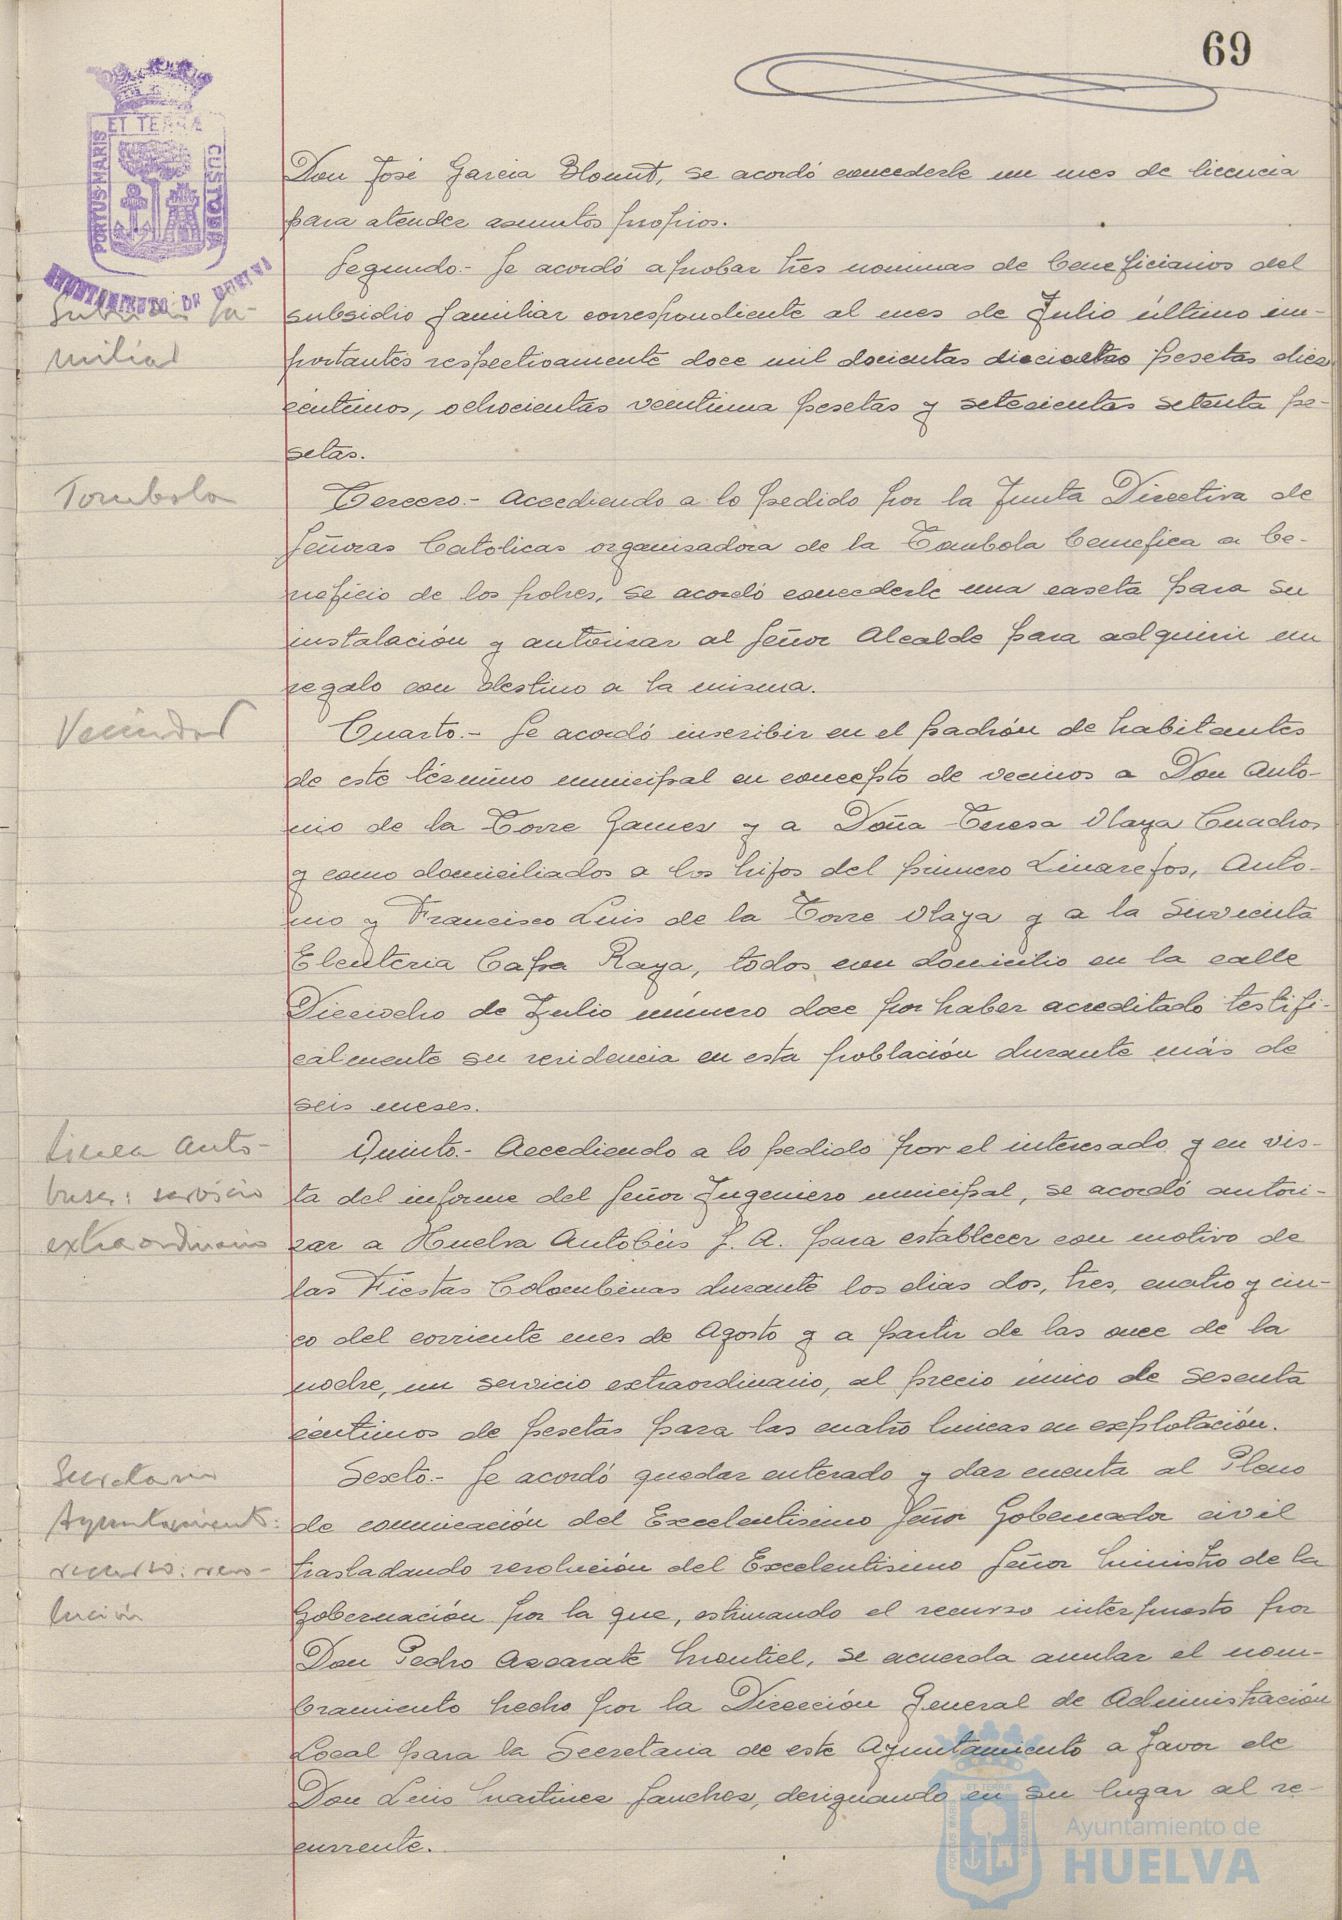 69
PORTUS MARIS
ET TERRÆ
CUSTODIA
AYUNTAMIENTO DE HUELVA
Don José Garcia Blount, se acordó concederle un mes de licencia
para atender asuntos propios.
Subsidio fa-
miliar
Segundo.- Se acordó aprobar tres nominas de beneficiarios del
subsidio familiar correspondiente al mes de Julio último im-
portantes respectivamente doce mil docientas dieciocho pesetas diez
céntimos, ochocientas veentiuna pesetas y setecientas setenta pe-
setas.
Tombola
Tercero.- Accediendo a lo pedido por la Junta Directiva de
Señoras Catolicas organisadora de la Tombola benefica a be-
neficio de los pobres, se acordó concederle una caseta para su
instalación y autorizar al Señor Alcalde para adquirir un
regalo con destino a la misma.
Vecindad
Cuarto.- Se acordó inscribir en el padrón de habitantes
de este término municipal en concepto de vecinos a Don Anto-
nio de la Torre Gamez y a Doña Teresa Olaya Cuadros
y como domiciliados a los hijos del primero Linarejos, Anto-
nio y Francisco Luis de la Torre Olaya y a la Sirvienta
Eleuteria Capa Raya, todos con domicilio en la calle
Dieciocho de Julio número doce por haber acreditado testifi-
calmente su residencia en esta población durante más de
seis meses.
Linea Auto-
buses: servicio
extraordinario
Quinto.- Accediendo a lo pedido por el interesado y en vis-
ta del informe del Señor Ingeniero municipal, se acordó autori-
zar a Huelva Autobús S. A. para establecer con motivo de
las Fiestas Colombinas durante los dias dos, tres, cuatro y cin-
co del corriente mes de Agosto y a partir de las once de la
noche, un servicio extraordinario, al precio único de sesenta
céntimos de pesetas para las cuatro lineas en explotación.
Secretario
Ayuntamiento:
recurso: reso-
lución
Sexto.- Se acordó quedar enterado y dar cuenta al Pleno
de comunicación del Excelentisimo Señor Gobernador civil
trasladando resolución del Excelentisimo Señor Ministro de la
Gobernación por la que, estimando el recurso interpuesto por
Don Pedro Azcarate Montiel, se acuerda anular el nom-
bramiento hecho por la Dirección General de Administración
Local para la Secretaria de este Ayuntamiento a favor de
Don Luis Martinez Sanchez, designando en su lugar al re-
currente.
Ayuntamiento de
HUELVA